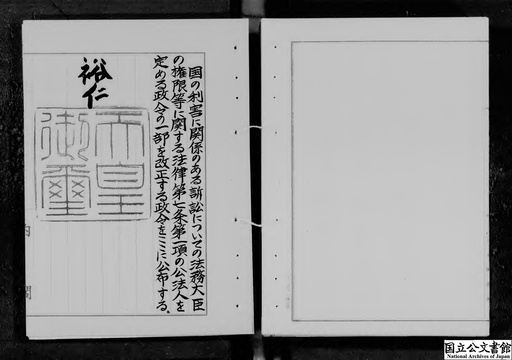 国の利害に関係のある訴訟についての法務大臣
の権限等に関する法律第七条第一項の公法人を
定める政令の一部を改正する政令をここに公布する。
裕仁
天皇
御璽
内
閣
国立公文書館
National Archives of Japan